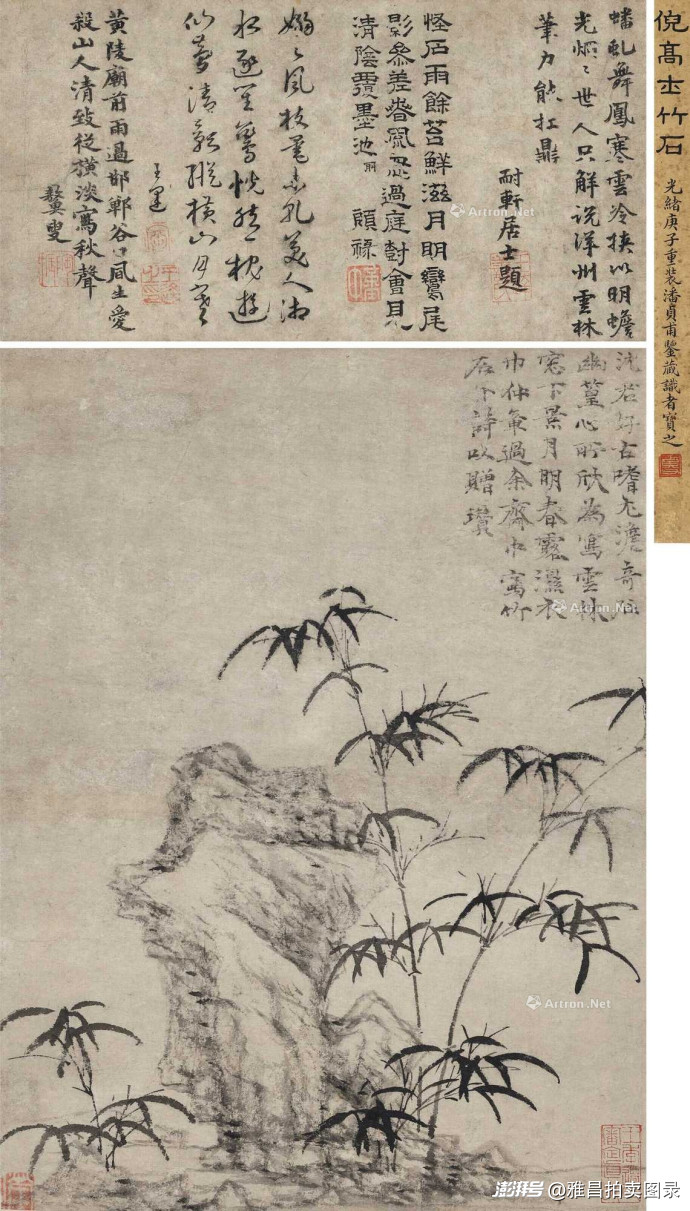 倪高士竹石
光緒庚子重裝潘貞甫鑒藏識者寶之
蟠虬舞鳳寒雲冷挾以明蟾
光烱〻世人只解说洋州雲林
筆力能扛鼎
耐軒居士題
怪石雨餘苔鮮滋月明鸞尾
影參差春風忽過庭會見
清陰覆墨池
顧祿
嫋〻風枝露未美人湘
水
夢清影縱横山月寒
黃陵廟前雨過邯鄲谷口風生愛
殺山人清致從橫淡寫秋聲
叟
沈君好古嗜尤澹奇石
幽篁心所欣為寫雲林
窓下景月明春露濕衣
巾仲過余齋中寫竹
石作詩以贈瓚
Artron.Net
Artron.Net
Artron.Net
澎湃号@雅昌拍卖图录